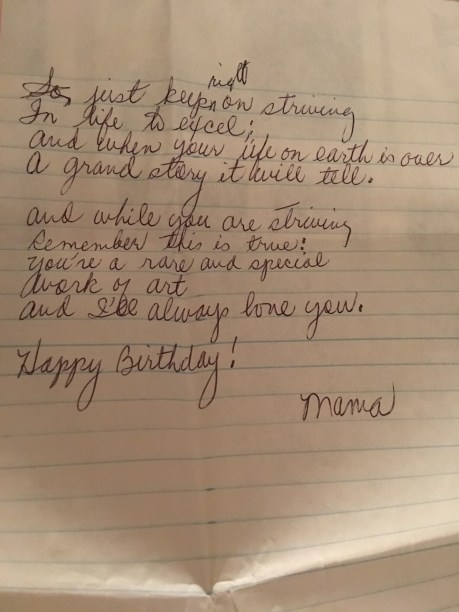 So, just keep right on striving
In life to excel;
and when your life on earth is over
A grand story it will tell.
and while you are striving
Remember this is true:
You're a rare and special
work of art
and I'll always love you.
Happy Birthday!
Mama